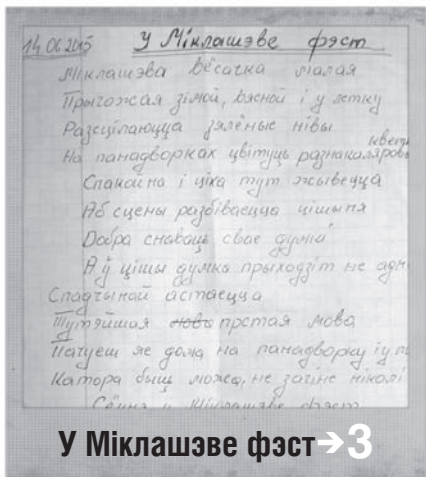 14.06.2015 У Міклашэве фэст
Міклашэва вёсачка малая
Прыгожая зімой, вясной і у летку
Разсцілаюцца зялёные нівы
кветк
На панадворках цвітуць разнакаляровы
Спакойна і ціха тут жывецца
Аб сцены разбіваецца цішыня
Добра снаваць свае думкі
А ў цішы думка прыходзіт не адн
Спадчынай астаецца
Тутэйшая прстая мова
Пачуеш яе дома, на панадворку і у п
Катора быць можа, не загіне ніколі
Сёння у Міклашэве фэст
У Міклашэве фэст → 3